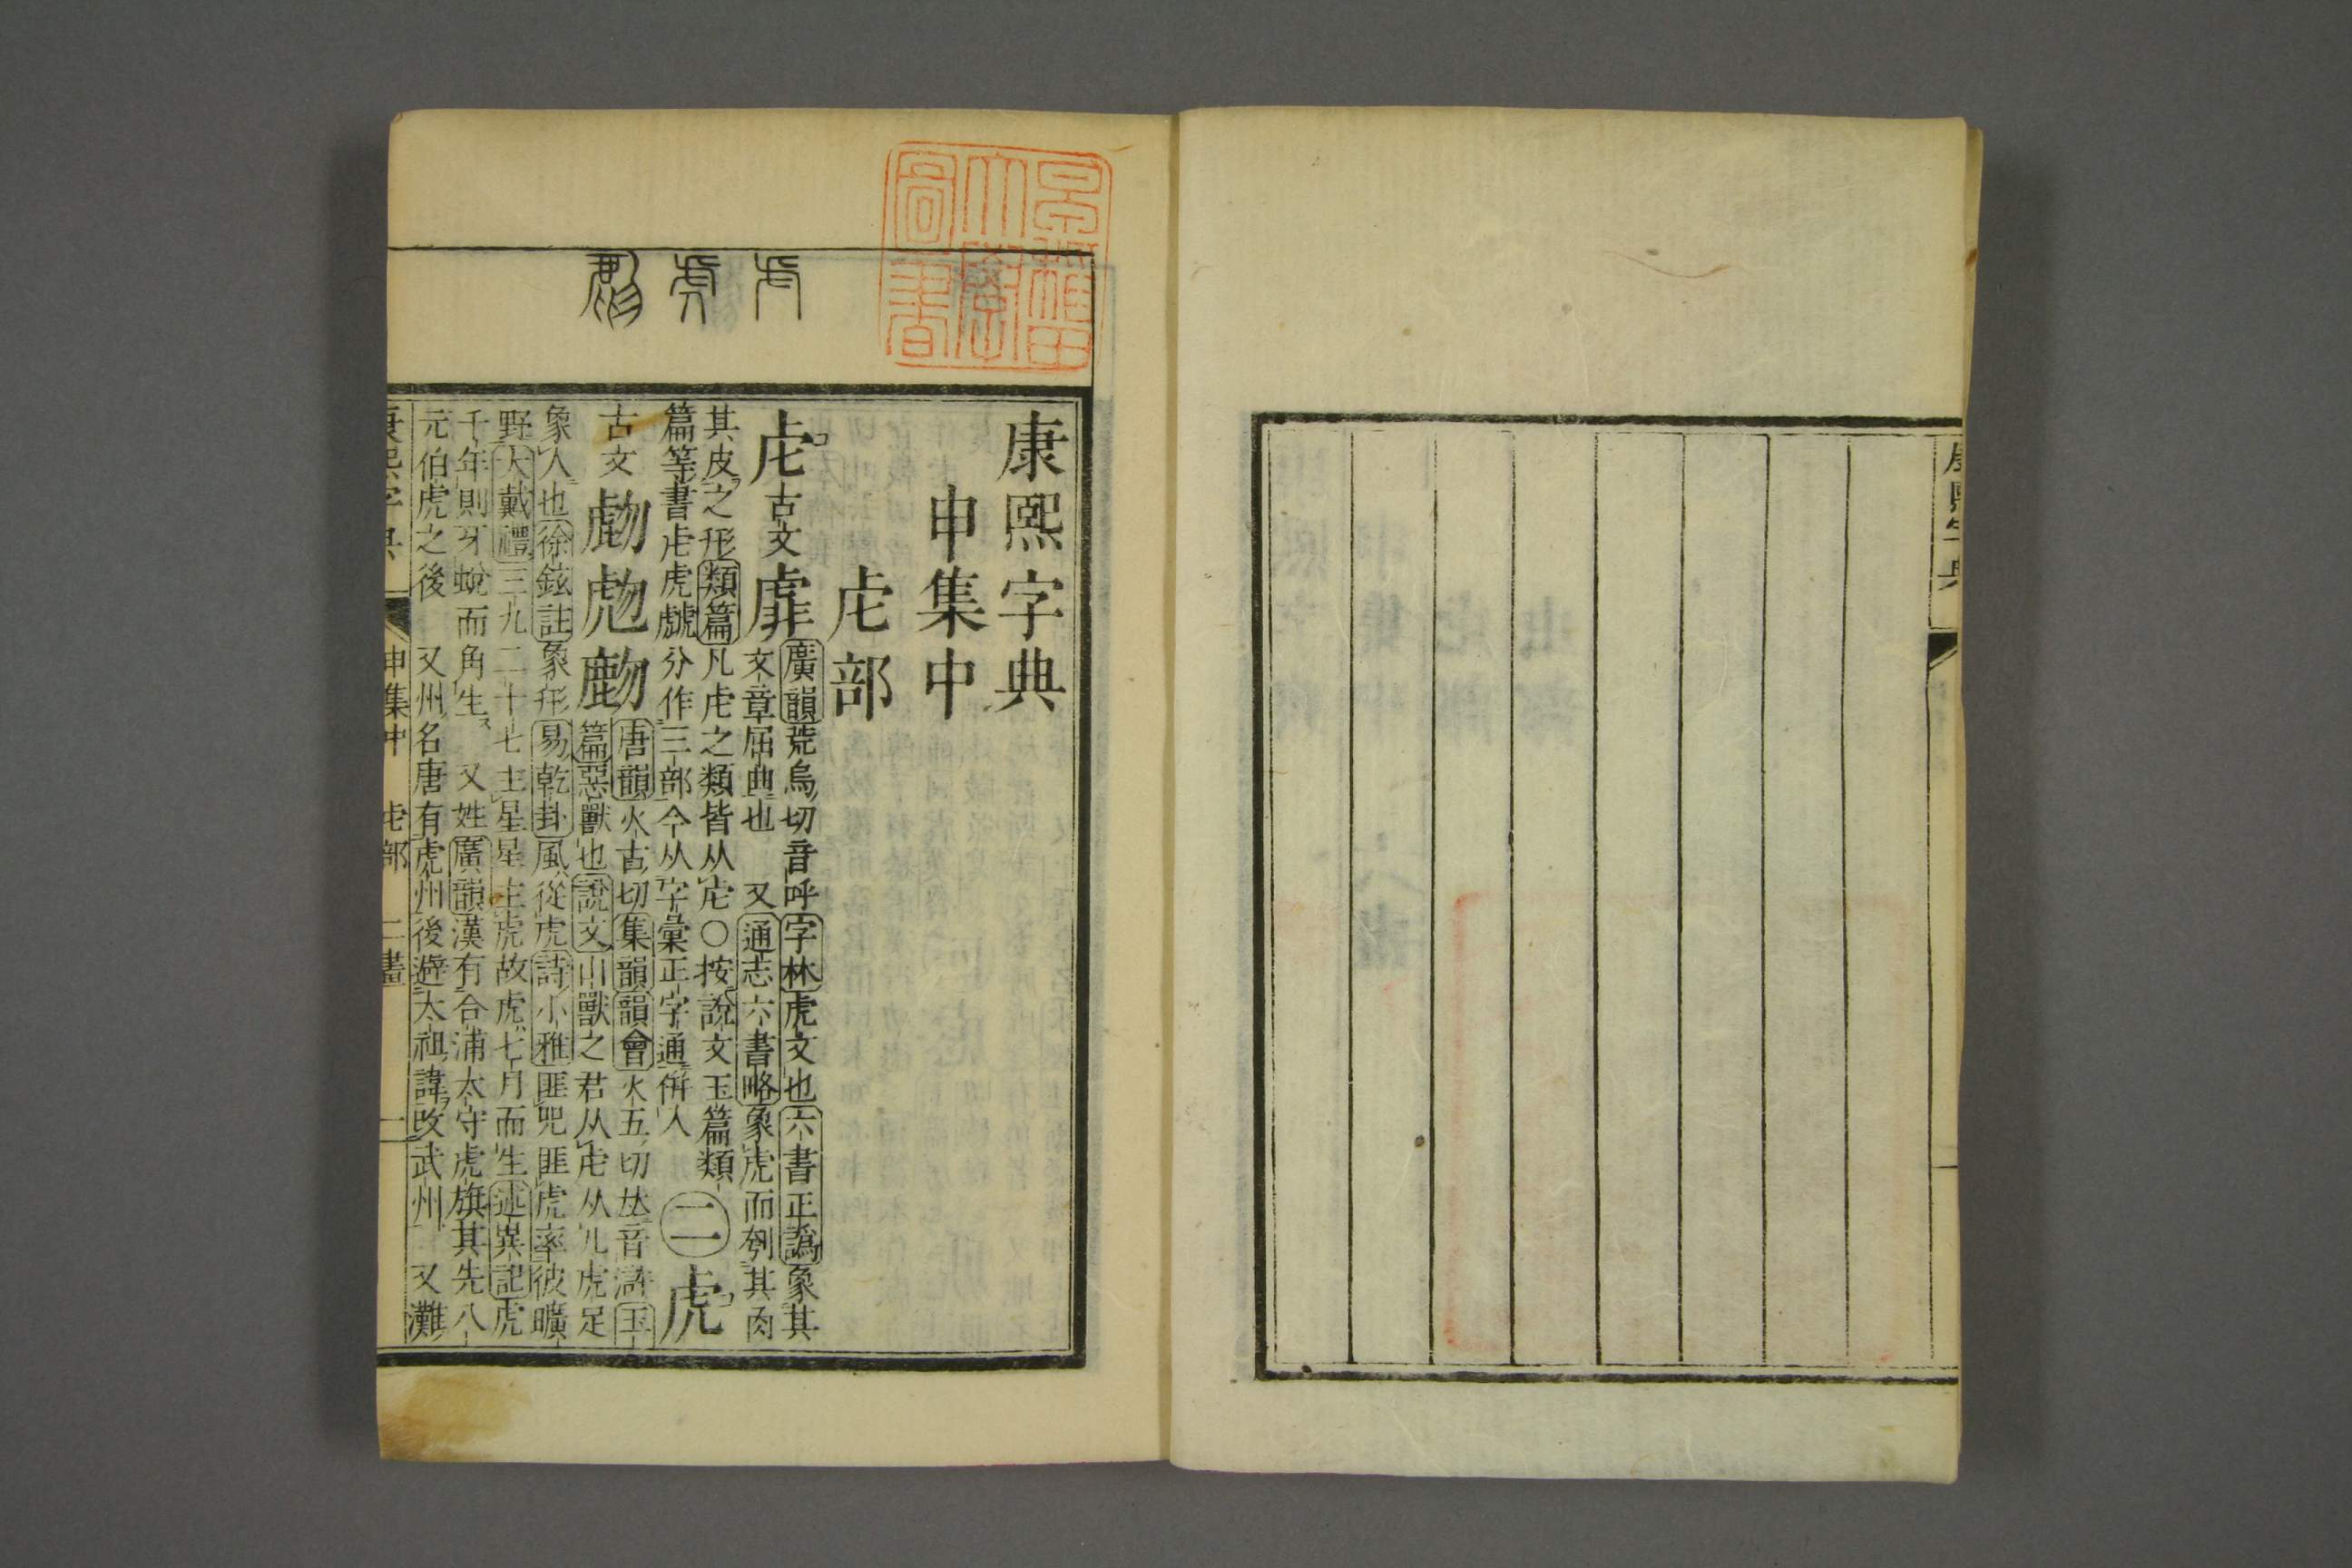 康熙字典
一
康熙字典
申集中
虍部
虍 古文
廣韻荒烏切音呼字林虎文也六書正譌象其
文章屈曲也 又通志六書略象虎而剮其肉
其皮之形類篇凡虍之類皆从虍○按說文玉篇類
篇等書虍虎虤分作三部今从字彙正字通倂入 二 虎
古文
唐韻火古切集韻韻會火五切𠀤音滸玉
篇惡獸也說文山獸之君从虍从儿虎足
象人也徐鉉註象形易乾卦風從虎詩小雅匪兕匪虎率彼曠
野大戴禮三九二十七主星星主虎故虎七月而生述異記虎
千年則牙蛻而角生 又姓廣韻漢有合浦太守虎旗其先八
元伯虎之後 又州名唐有虎州後避太祖諱改武州 又灘
康熙字典 申集中 虍部 二畫 一